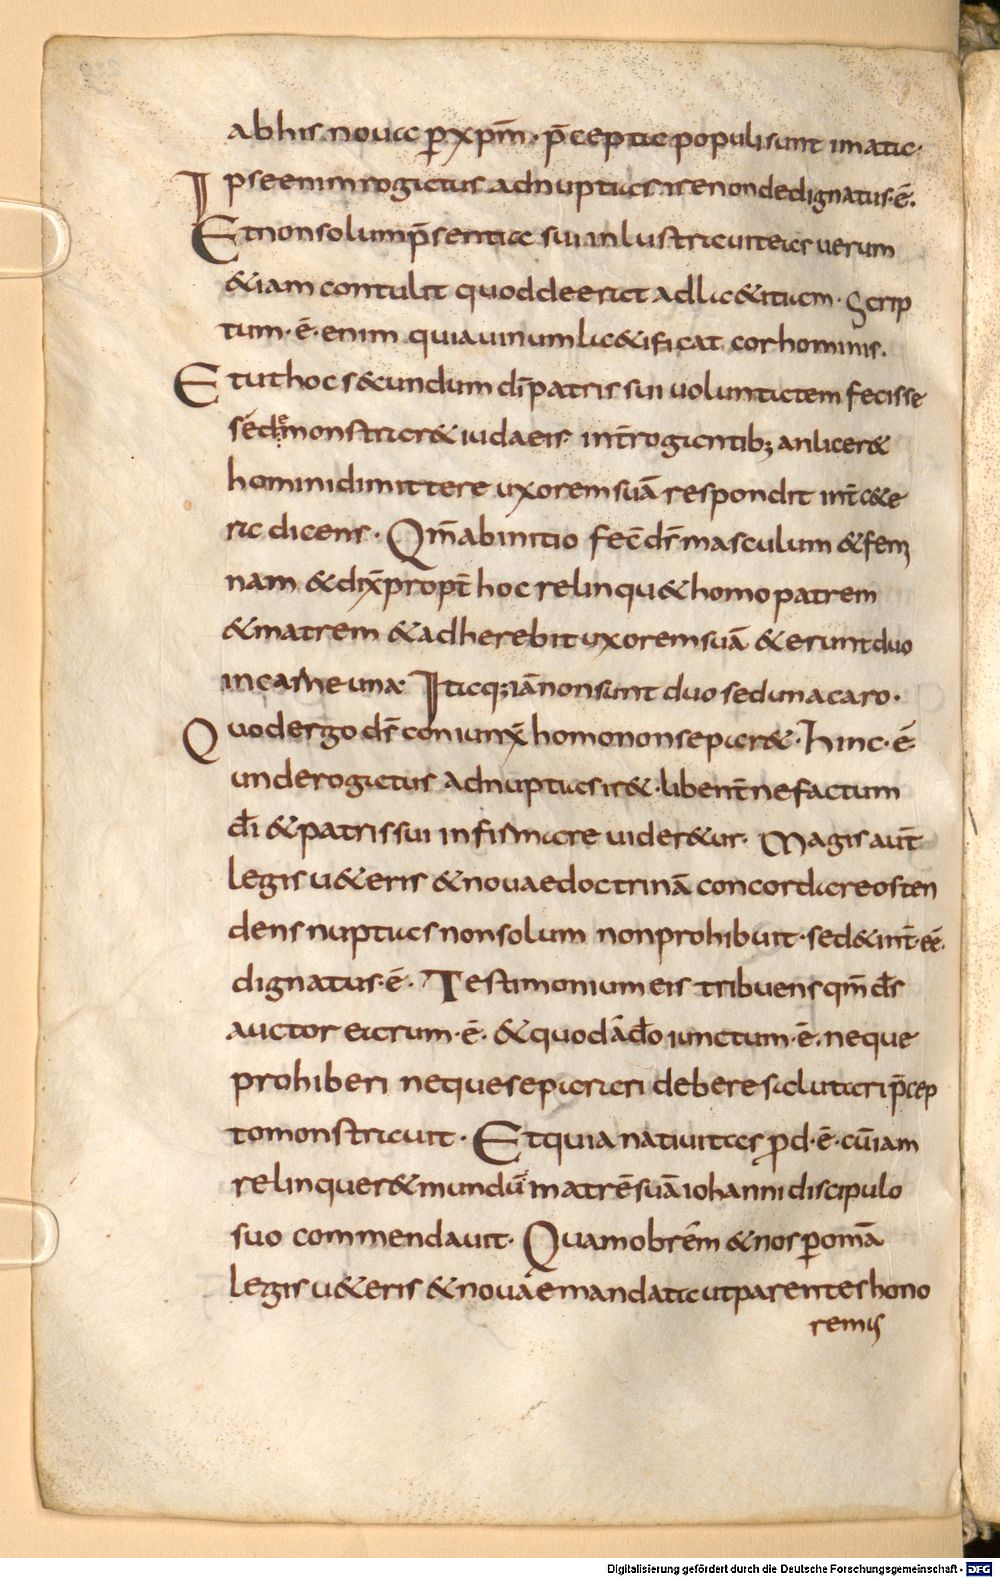 abhis noua p xpm̄· p̄cepta populi sunt imata·
Ipse enim rogatus ad nuptias ire non dedignatus·ē·
Et non solum p̄sentia sui inlustrauit eas uerum
&iam contulit quod deerat ad la&itiam· Scrip
tum·ē· enim quia uinum la&ificat cor hominis·
Et ut hoc secundum dī patris sui uoluntatem fecisse
se demonstrar& iudaeis intrrogantib; an licer&
homini dimittere uxorem suā respondit int̄ c&e
ra dicens· Qm̄ ab initio fec̄ ds̄ masculum & femi
nam & dix̄ propt̄ hoc relinqu& homo patrem
& matrem & adherebit uxorem suā & erunt duo
in carne una· Itaq; iā non sunt duo sed una caro·
Quod ergo ds̄ coniunx̄ homo non separ&· Hinc·ē·
unde rogatus ad nuptias ir& · libent̄ ne factum
dī & patris sui infirmare uider&ur· Magis aut̄
legis u&eris & nouae doctrinā concordare osten
dens nuptias non solum non prohibuit· sed & int̄·eē·
dignatus·ē· Testimonium eis tribuens qm̄ ds̄
auctor earum·ē· & quod a dō iunctum·ē· neque
prohiberi neque separari debere salutari p̄cep
to monstrauit· Et quia natiuitas p d·ē· cū iam
relinquer& mundū matrē suā iohanni discipulo
suo commendauit· Quam ob rēm & nos p omā
legis u&eris & nouae mandata ut parentes hono
remus
Digitalisierung gefördert durch die Deutsche Forschungsgemeinschaft - DFG